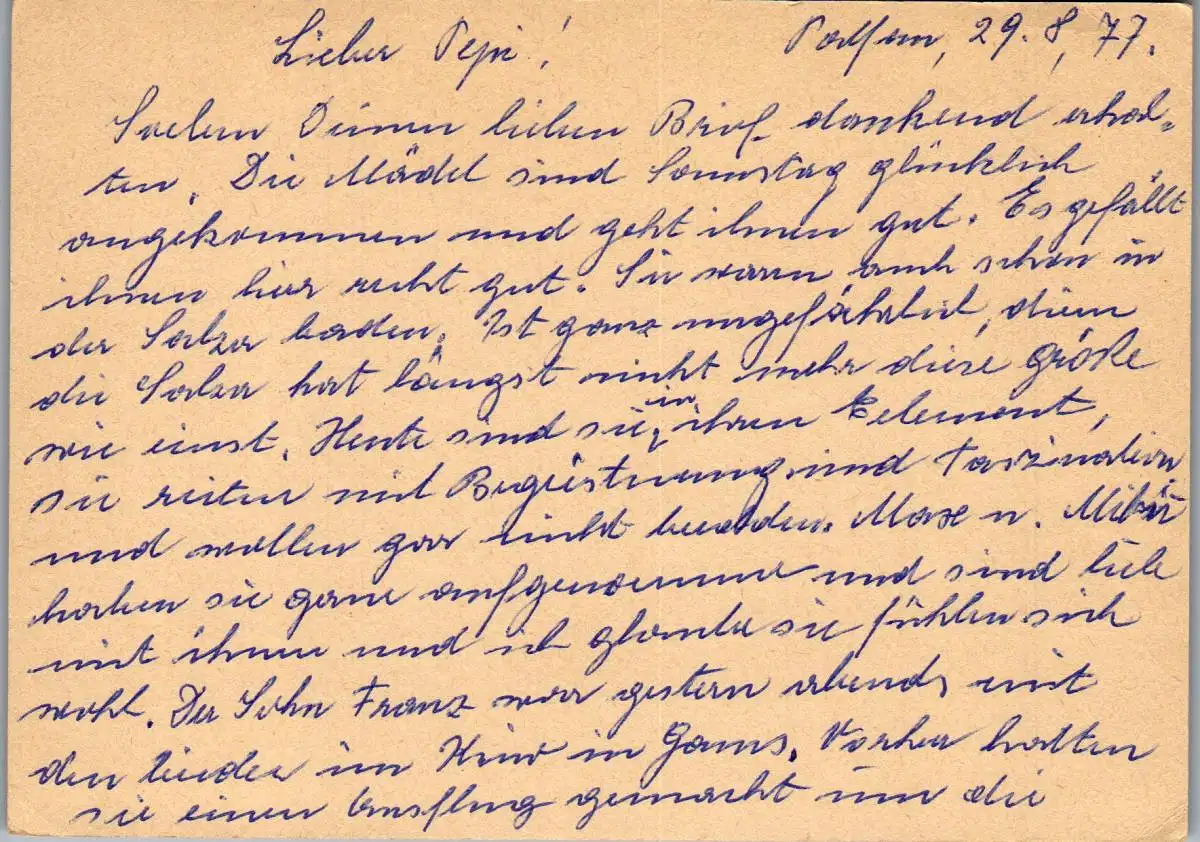 Lieber Pepi! Palfau, 29. 8, 77.
Soeben Deinen lieben Brief dankend erhal-
ten. Die Mädel sind Sonnstag glücklich
angekommen und geht ihnen gut. Es gefällt
ihnen hier recht gut. Sie waren auch schon in
der Salza baden. Ist ganz ungefährlich, denn
die Salza hat längst nicht mehr diese Größe
wie einst. Heute sind sie in ihren Eelement,
sie reiten mit Begeisterung und Faszination
und wollen gar nicht beenden. Maxe u. Mitzi
haben sie gerne aufgenommen und sind lieb
mit ihnen und ich glaube sie fühlen sich
wohl. Der Sohn Franz war gestern abends mit
den beiden im Kino in Gams. Vorher hatten
sie einen Ausflug gemacht um die